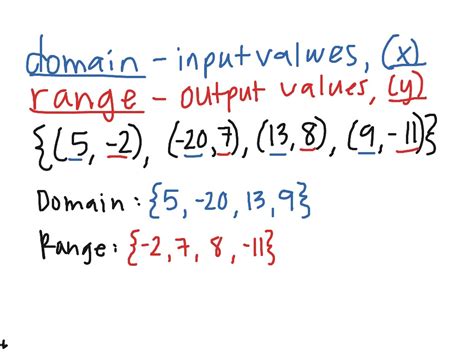 domain - input values, (x)
range - output values, (y)
{(5, -2), (-20,7), (13, 8), (9, -11)}
Domain : {5, -20, 13, 9}
Range : {-2, 7, 8, -11}